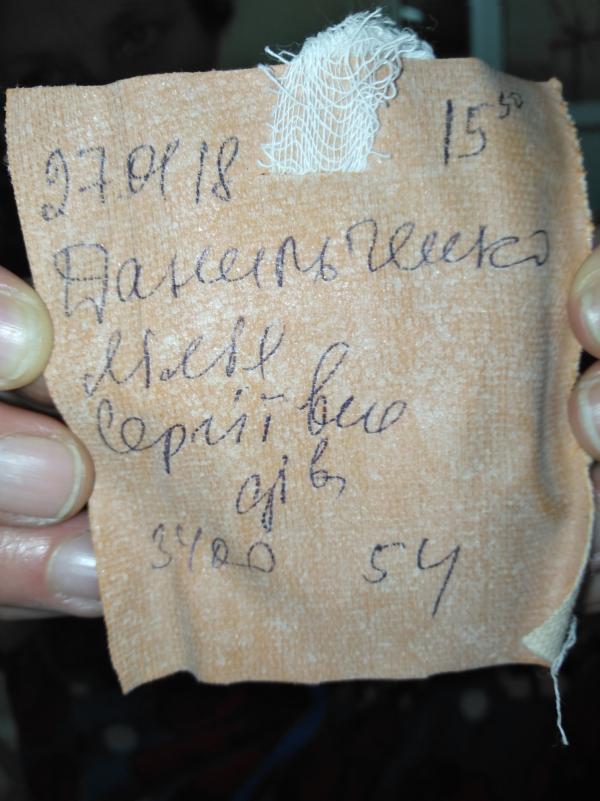 27.04 18 15 50
Данильченко
Лілія
Сергіївна
дів
3400 54